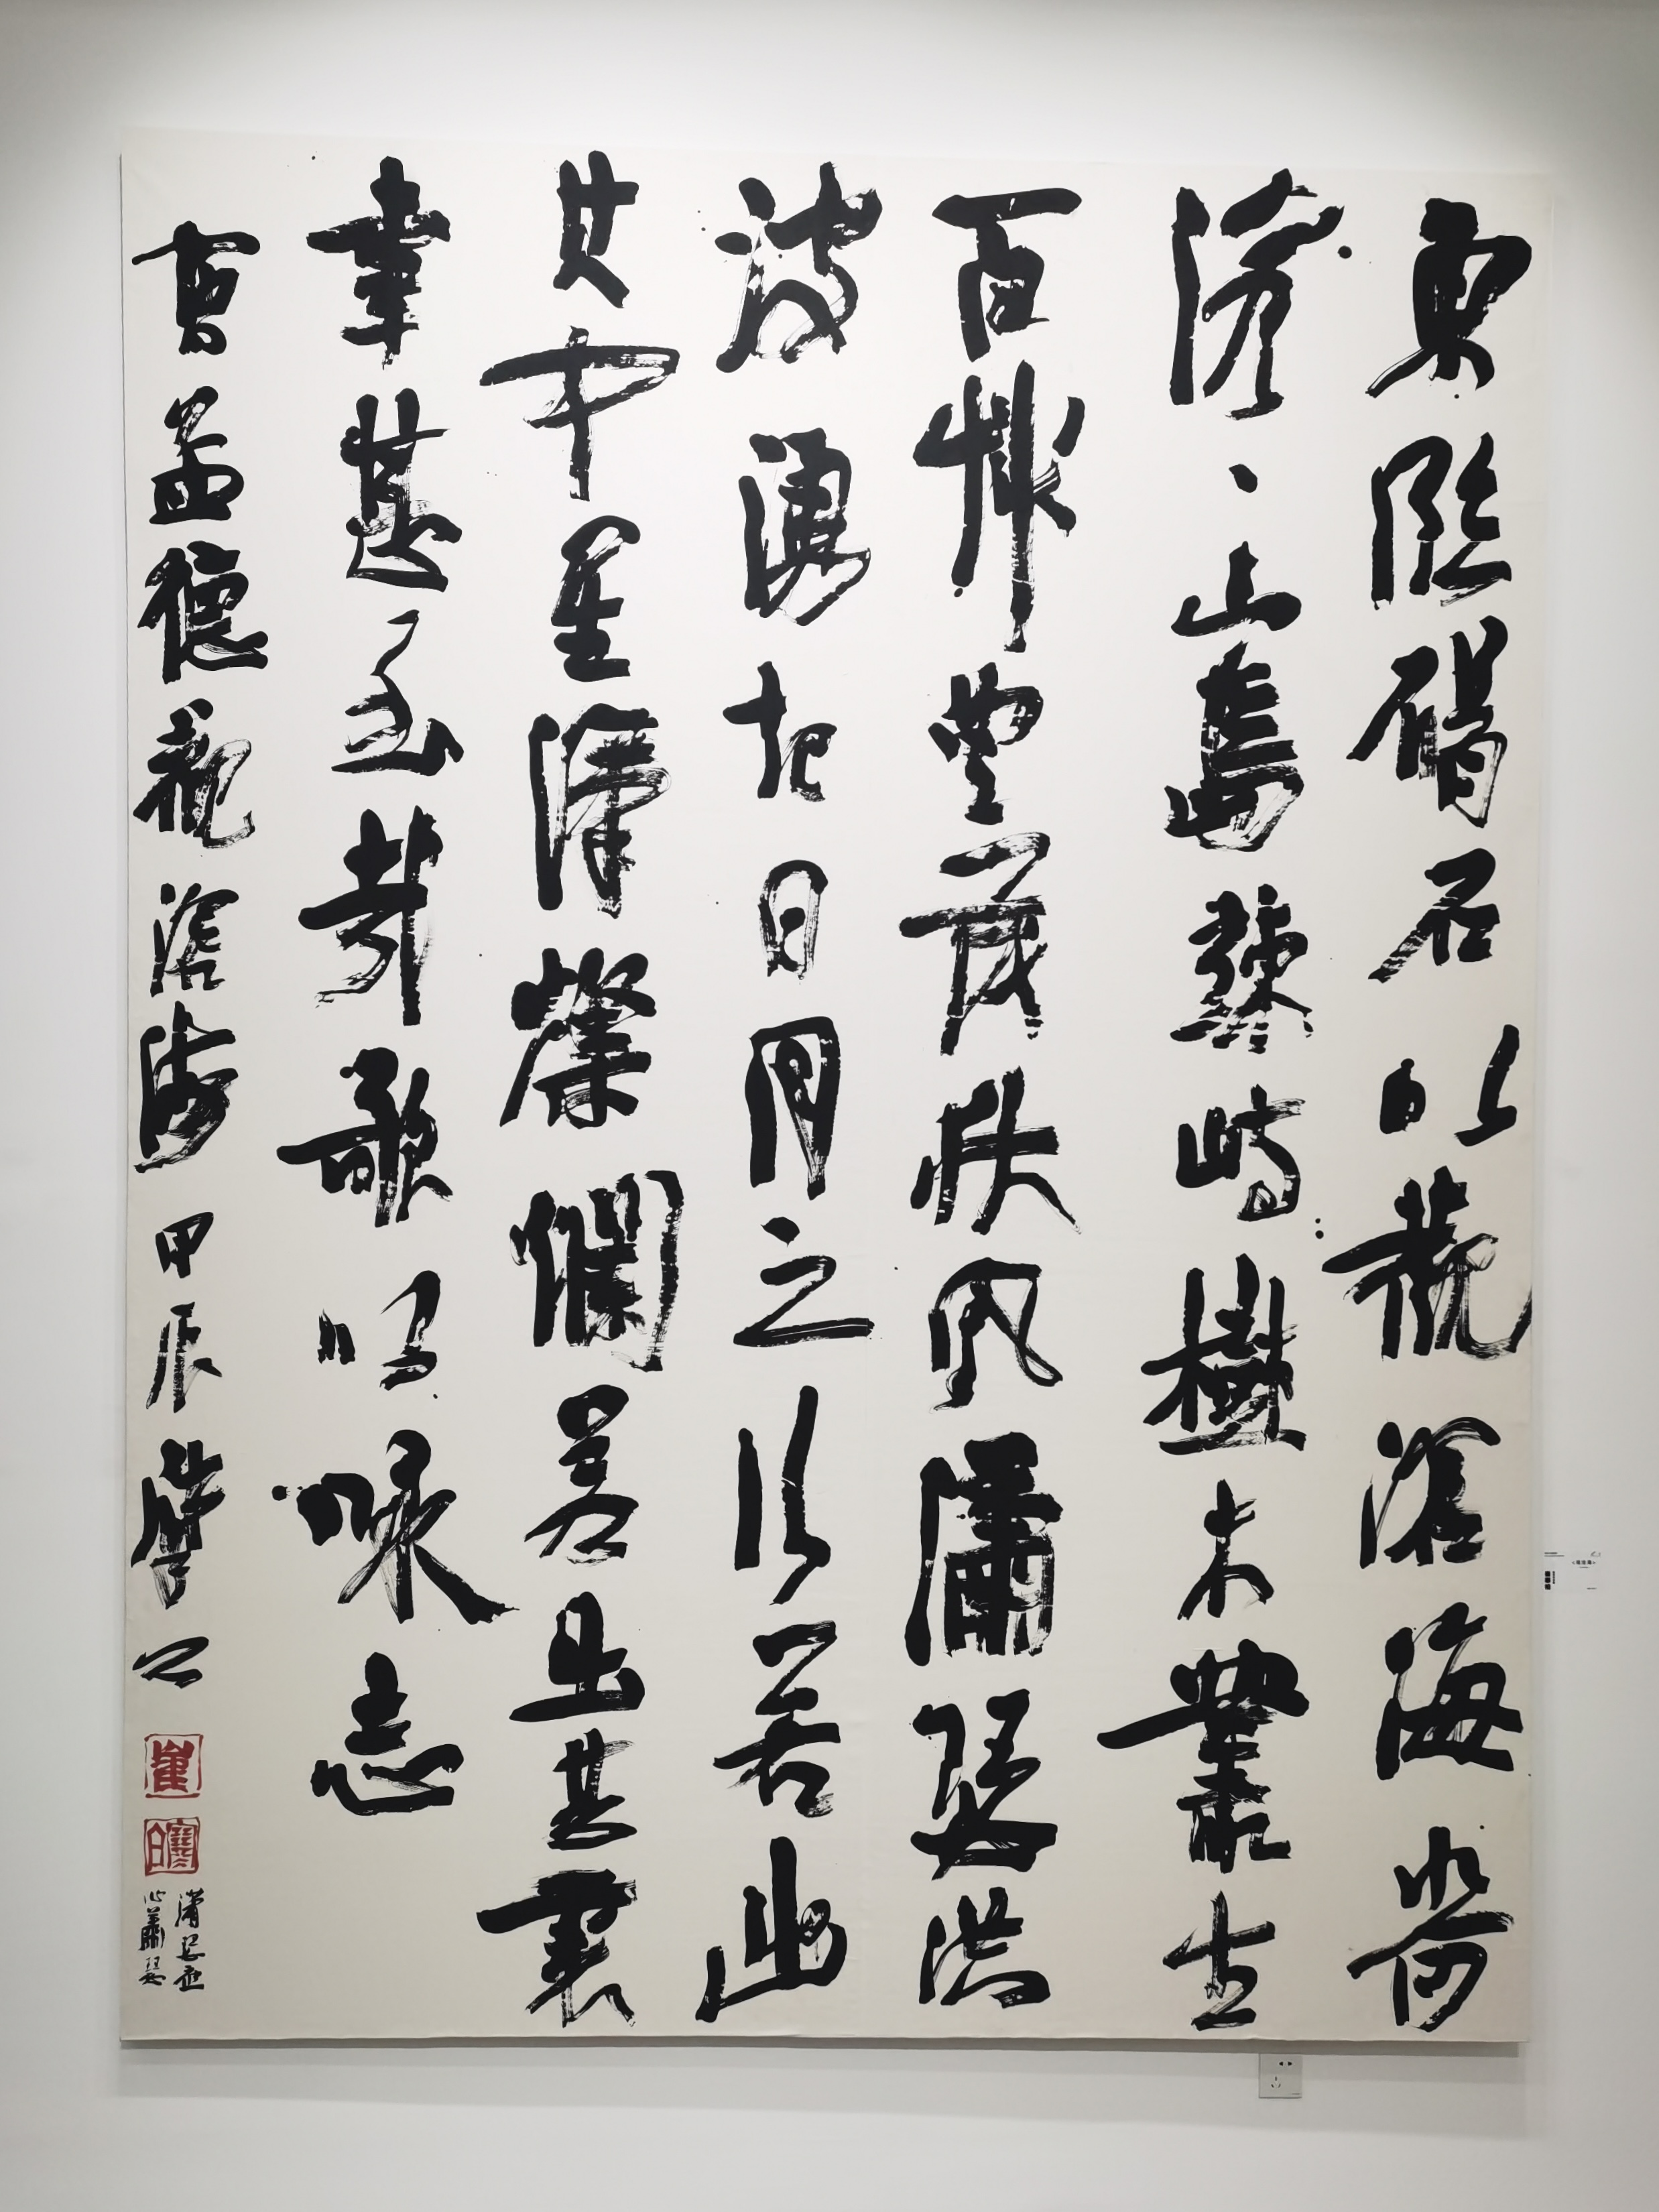 東臨碣石以觀滄海水何
澹〻山島竦峙樹木叢生
百艸豐茂秋風瀟瑟洪
波湧起日月之行若出
其中星漢燦爛若出其裏
幸甚至哉歌以咏志
曹孟德觀滄海 甲辰
瀟瑟應
作蕭瑟